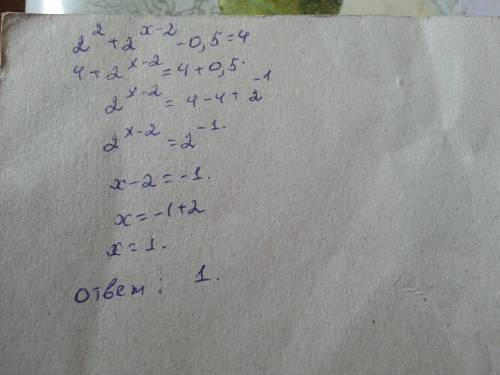 2² + 2ˣ⁻² - 0,5 = 4
4 + 2ˣ⁻² = 4 + 0,5.
2ˣ⁻² = 4 - 4 + 2⁻¹
2ˣ⁻² = 2⁻¹.
x - 2 = -1.
x = -1 + 2
x = 1.
Ответ: 1.